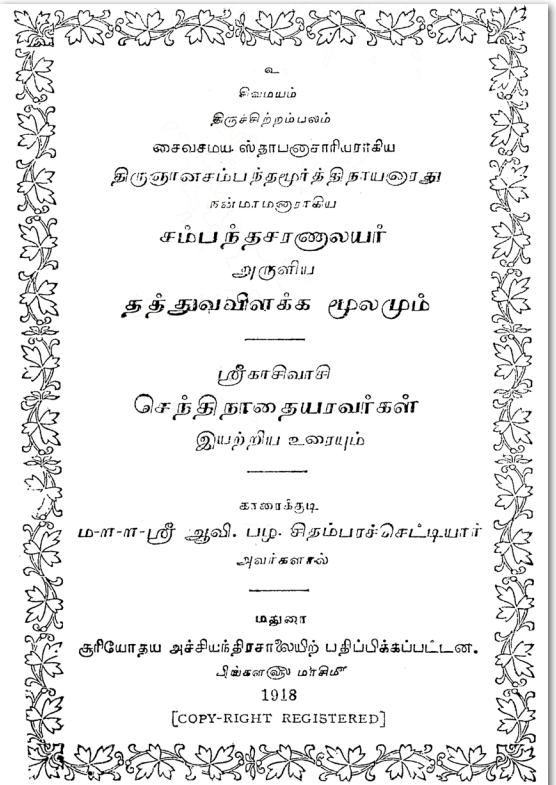 உ
சிவமயம்
திருச்சிற்றம்பலம்
சைவசமய ஸ்தாபனாசாரியராகிய
திருஞானசம்பந்தமூர்த்திநாயனாரது
நன்மாமனாராகிய
சம்பந்தசரணாலயர்
அருளிய
தத்துவவிளக்க மூலமும்
ஸ்ரீகாசிவாசி
செந்திநாதையரவர்கள்
இயற்றிய உரையும்
காரைக்குடி
ம-ா-ா-ஸ்ரீ ஆவி. பழ. சிதம்பரச்செட்டியார்
அவர்களால்
மதுரை
சூரியோதய அச்சியந்திரசாலையிற் பதிப்பிக்கப்பட்டன.
பிங்கள௵ மார்கழி௴
1918
[COPY-RIGHT REGISTERED]